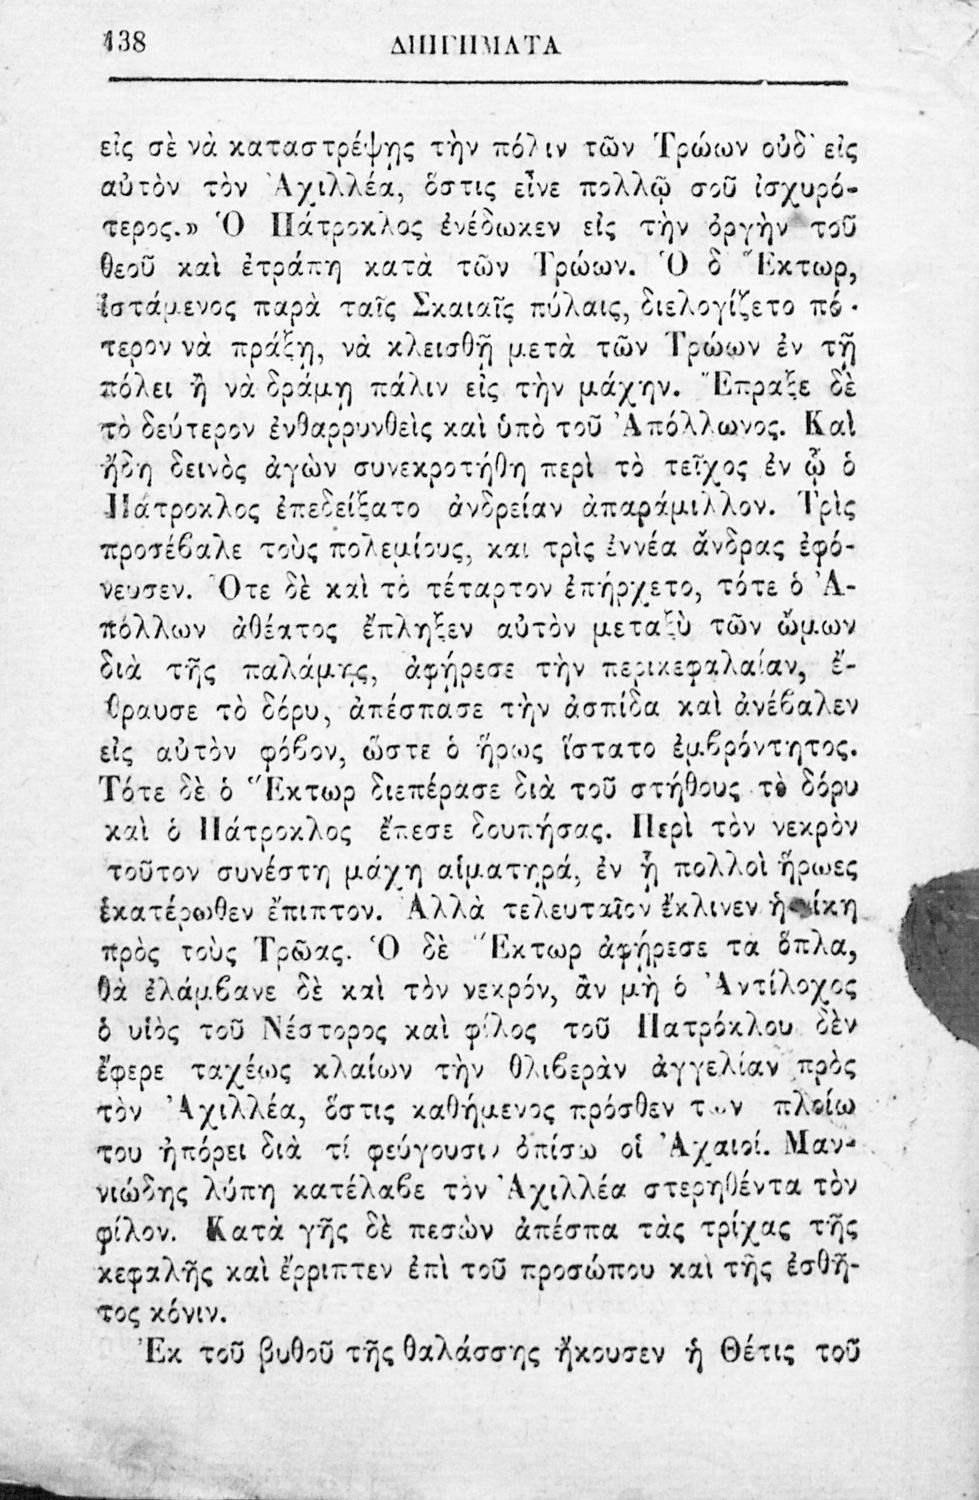 138 ΔΙΗΓΗΜΑΤΑ
εἰς σὲ νὰ καταστρέψῃς τὴν πόλιν τῶν Τρώων οὐδ' εἰς
αὐτὸν τὸν Ἀχιλλέα, ὅστις εἶνε πολλῷ σοῦ ἰσχυρό-
τερος.» Ὁ Πάτροκλος ἐνέδωκεν εἰς τὴν ὀργὴν τοῦ
θεοῦ καὶ ἐτράπη κατὰ τῶν Τρώων. Ὁ δ Ἕκτωρ,
ἱστάμενος παρὰ ταῖς Σκαιαῖς πύλαις, διελογίζετο πό-
τερον νὰ πράξῃ, νὰ κλεισθῇ μετὰ τῶν Τρώων ἐν τῇ
πόλει ἢ νὰ δράμῃ πάλιν εἰς τὴν μάχην. Ἔπραξε δὲ
τὸ δεύτερον ἐνθαρρυνθεὶς καὶ ὑπὸ τοῦ Ἀπόλλωνος. Καὶ
ἤδη δεινὸς ἀγὼν συνεκροτήθη περὶ τὸ τεῖχος ἐν ᾧ ὁ
Πάτροκλος ἐπεδείξατο ἀνδρείαν ἀπαράμιλλον. Τρὶς
προσέβαλε τοὺς πολεμίους, καὶ τρὶς ἐννέα ἄνδρας ἐφό-
νευσεν. Ὅτε δὲ καὶ τὸ τέταρτον ἐπήρχετο, τότε ὁ Ἀ-
πόλλων ἀθέατος ἔπληξεν αὐτὸν μεταξὺ τῶν ὤμων
διὰ τῆς παλάμης, ἀφῄρεσε τὴν περικεφαλαίαν, ἔ-
θραυσε τὸ δόρυ, ἀπέσπασε τὴν ἀσπίδα καὶ ἀνέβαλεν
εἰς αὐτὸν φόβον, ὥστε ὁ ἥρως ἵστατο ἐμβρόντητος.
Τότε δὲ ὁ Ἕκτωρ διεπέρασε διὰ τοῦ στήθους τὸ δόρυ
καὶ ὁ Πάτροκλος ἔπεσε δουπήσας. Περὶ τὸν νεκρὸν
τοῦτον συνέστη μάχη αἱματηρά, ἐν ᾗ πολλοὶ ἥρωες
ἑκατέρωθεν ἔπιπτον. Ἀλλὰ τελευταῖον ἔκλινεν ἡ νίκη
πρὸς τοὺς Τρῶας. Ὁ δὲ Ἕκτωρ ἀφῄρεσε τὰ ὅπλα,
θὰ ἐλάμβανε δὲ καὶ τὸν νεκρόν, ἂν μὴ ὁ Ἀντίλοχος
ὁ υἱὸς τοῦ Νέστορος καὶ φίλος τοῦ Πατρόκλου δὲν
ἔφερε ταχέως κλαίων τὴν θλιβερὰν ἀγγελίαν πρὸς
τὸν Ἀχιλλέα, ὅστις καθήμενος πρόσθεν τῶν πλοίω
του ἠπόρει διὰ τί φεύγουσιν ὀπίσω οἱ Ἀχαιοί. Μαν-
νιώδης λύπη κατέλαβε τὸν Ἀχιλλέα στερηθέντα τὸν
φίλον. Κατὰ γῆς δὲ πεσὼν ἀπέσπα τὰς τρίχας τῆς
κεφαλῆς καὶ ἔρριπτεν ἐπὶ τοῦ προσώπου καὶ τῆς ἐσθῆ-
τος κόνιν.
Ἐκ τοῦ βυθοῦ τῆς θαλάσσης ἤκουσεν ἡ Θέτις τοῦ